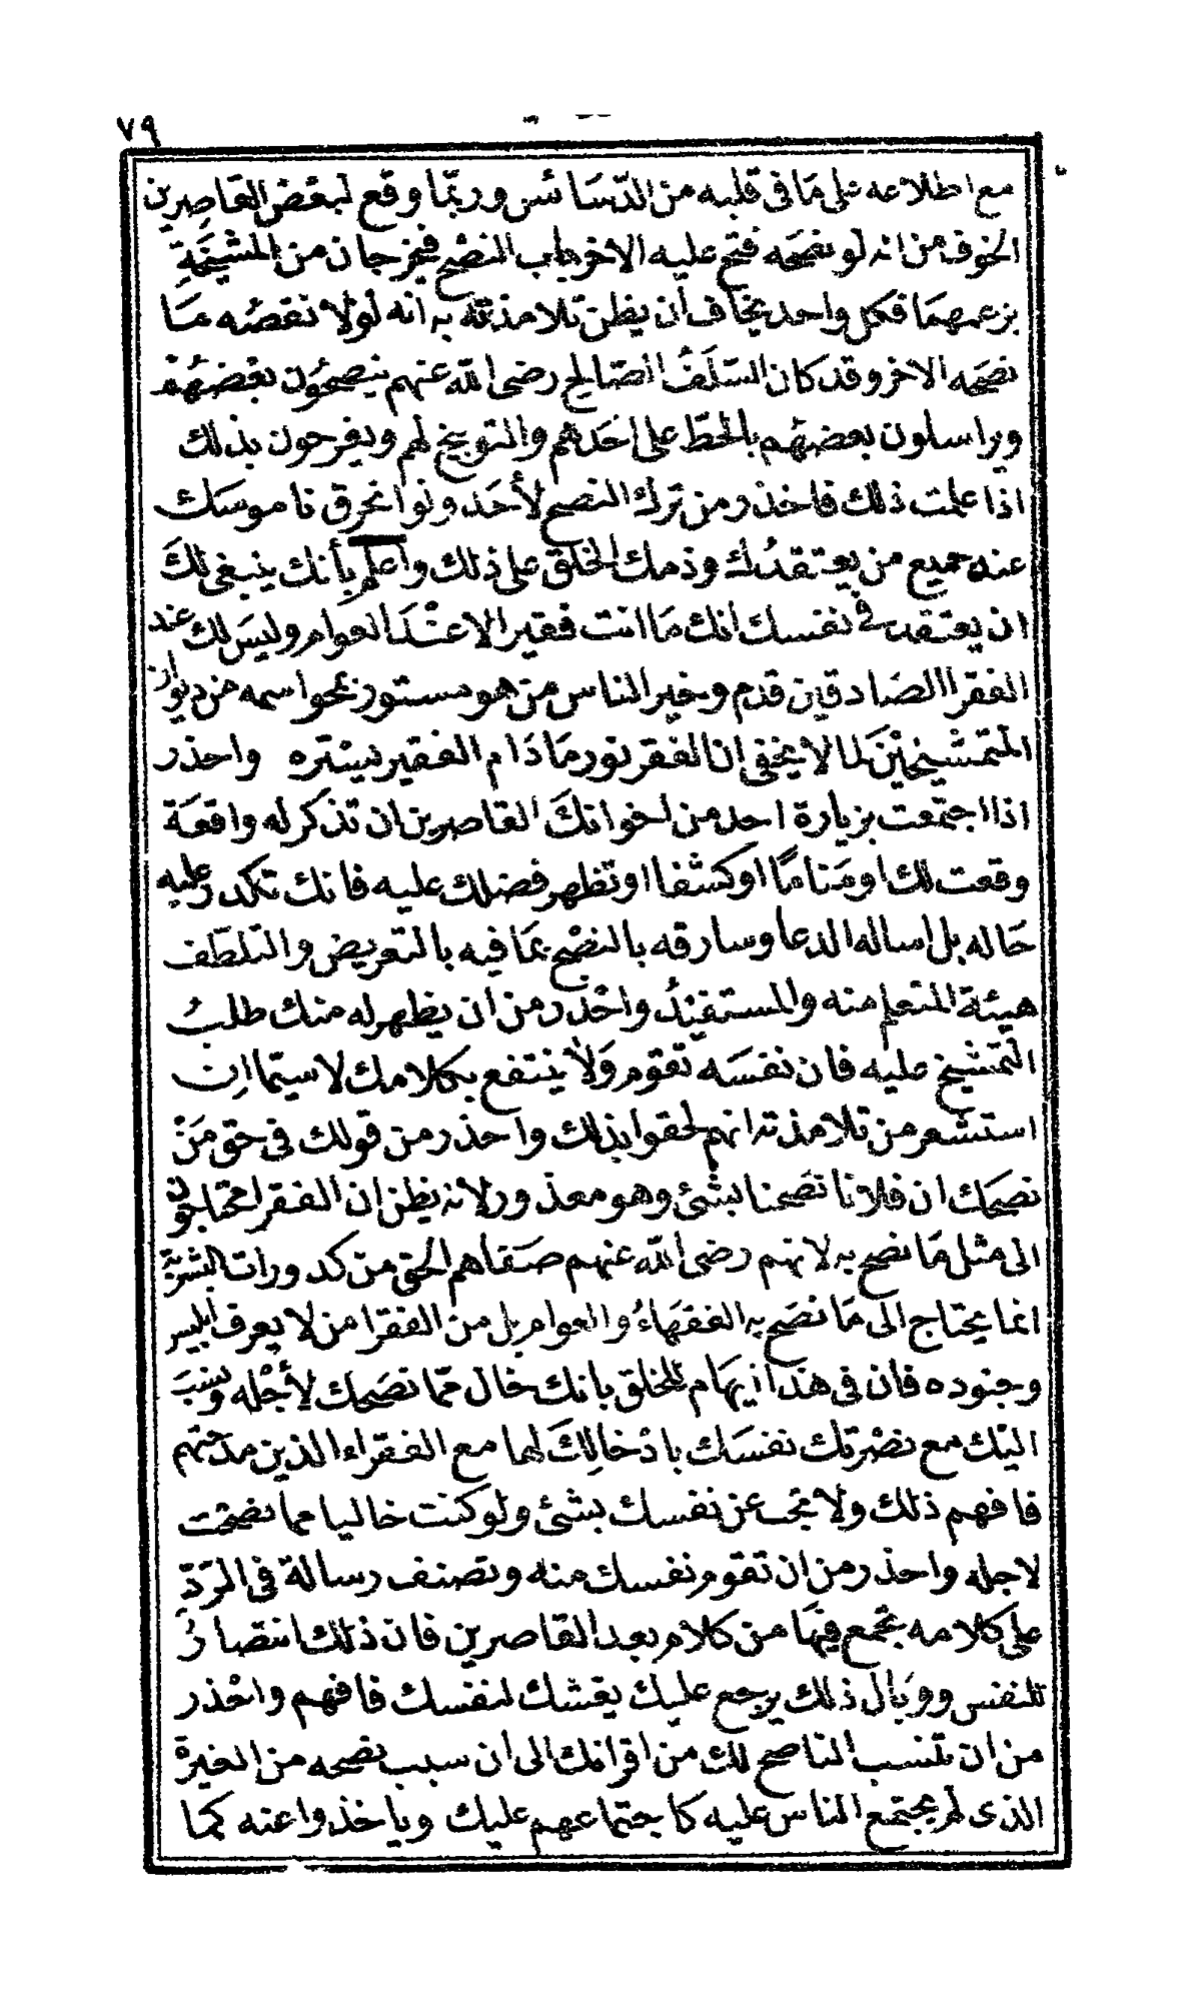 ٧٩
مع اطلاعه على مَا فى قلبه من الدّسَائس وربّما وقع لبعْض القاصِرين
الخوف من انه لو نصحه فتح عليه الاخر باب النصْح فيخرجان من المشيخَةِ
بزعمهمَا فكل واحد يخاف أن يظن تلامذته به انه لوْلا نقصُه مَا
نصحَه الاخر وقد كان السّلَفُ الصّالح رضى الله عنهم ينصحُون بعْضهُمْ
ويراسلون بعضهُم بالحطّ على احَدهم والتوبيخ لهم ويفرحون بذلك
اذا علمت ذلك فاحْذر من ترك النصح لأحَد ولو انخرق ناموسَك
عند جميع من يعتقدُك وذمك الخلق على ذلك واعلم بأنك ينبغى لكَ
ان يعتقد فى نفسك انك مَا انت فقير الا عنْدَ العوام وليسَ لك عند
الفقرا الصَادقين قدم وخير الناس من هو مستور بمحو اسمه من ديوان
المتمَشيْخيْنَ لما لا يخفى ان الفقر نور مَا دَام الفقير يسْتره واحذر
اذا اجتمعت بزيارة احد من اخوانكَ القاصرين ان تذكر له واقعَة
وقعت لك او مَنامًا او كشفا او تظهر فضلك عليه فانك تكدر عليه
حَاله بل اساله الدعا وسارقه بالنصْح بمَا فيه بالتعريض والتلطّف
هيئة المتعلم منه والمستفيْدُ واحْذر من ان يظهر له منك طلبُ
التمشيخ عليه فان نفسَه تقوم وَلاْ ينتفع بكلامك لا سيّما اِن
استشعر من تلامذته انهم لحقوا بذلك واحذر من قولك فى حق مَنْ
نصحَك ان فلانا نصَحنا بشئ وهو معذور لانه يظن ان الفقرا محتاجون
الى مثل مَا نصح به لانهم رضى الله عنهم صَفاهم الحق من كدورات البشرية
انما يحتاج الى مَا نصَح به الفقهَاءُ والعوام بل من الفقرا من لا يعرف ابليس
وجنوده فان فى هَذا ايهَام للخلق بانك خال ممّا نصَحك لأجْله ونسَبَ
اليْك مع نصْرتك نفسَك بادْخالِكَ لها مع الفقراء الذين مدحتهم
فافهم ذلك ولا تجب عن نفسك بشئ ولو كنت خاليا مما نصحت
لاجله واحذر من ان تقوم نفسك منه وتصنف رسالة فى الرّدّ
على كلامه تجمع فيهَا من كلام بعد القاصرين فان ذلك انتصارُ
للنفس ووبَال ذلك يرجع عليك بغشك لنفسك فافهم واحْذر
من ان تنسب الناصح لك من اقرانك الى ان سبب نصحه من الغيرة
الذى لم يجتمع الناس عليه كاجتماعهم عليك وياخذوا عنه كما